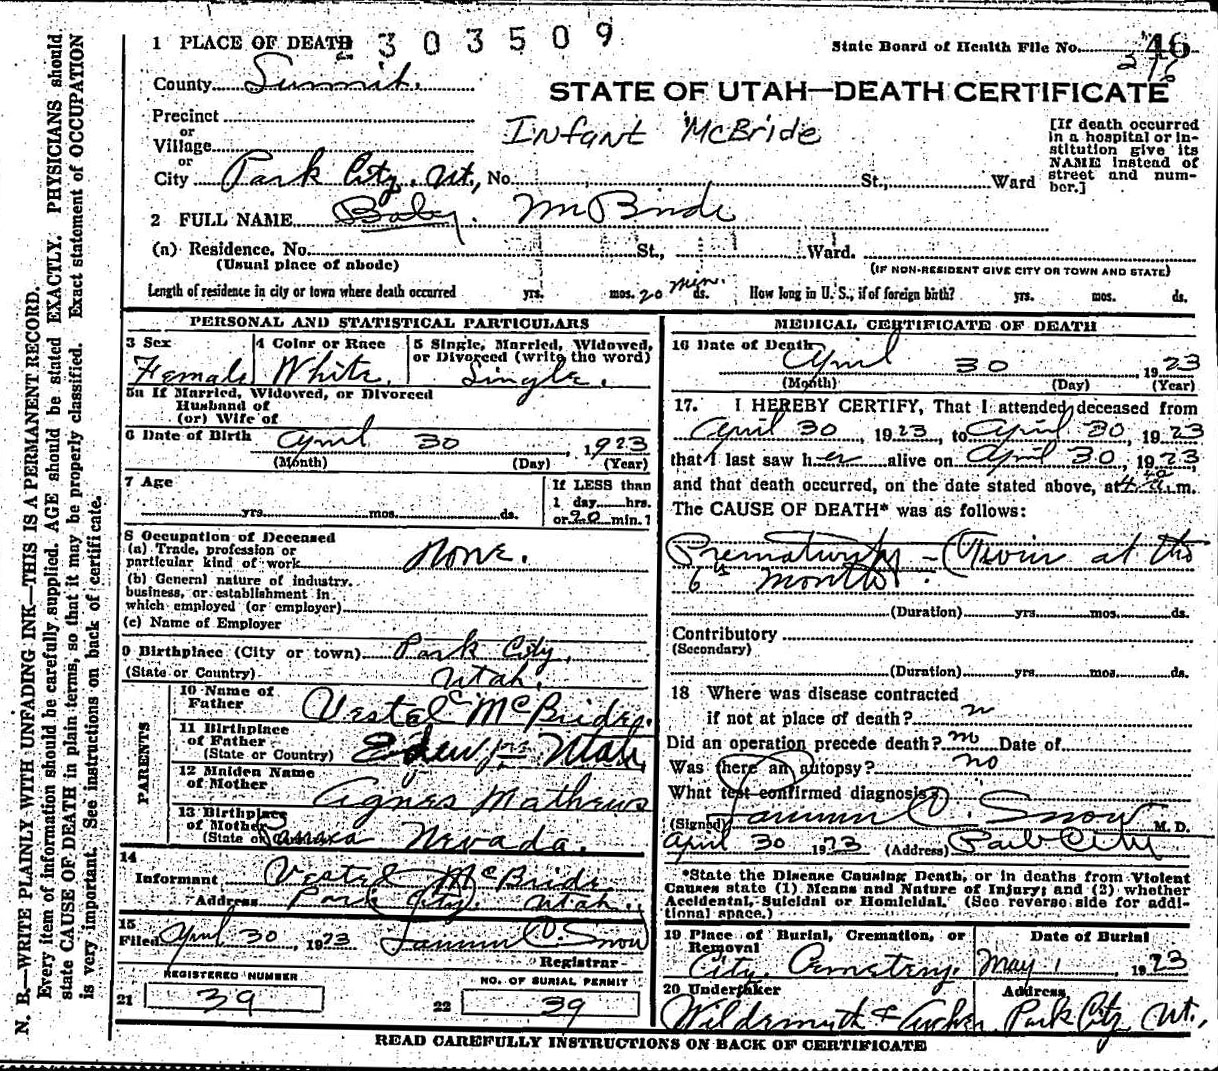 1 PLACE OF DEATH 303509
State Board of Health File No. 46
County Summit.
STATE OF UTAH—DEATH CERTIFICATE
Precinct
or
Village
or
Infant McBride
[If death occurred in a hospital or institution give its NAME instead of street and number.]
City Park City, Ut., No. St., Ward
2 FULL NAME Baby McBride
(a) Residence. No. St., Ward.
(Usual place of abode)
(IF NON-RESIDENT GIVE CITY OR TOWN AND STATE)
Length of residence in city or town where death occurred yrs. mos. 20 min. ds. How long in U. S., if of foreign birth? yrs. mos. ds.
PERSONAL AND STATISTICAL PARTICULARS
3 Sex
4 Color or Race
5 Single, Married, Widowed, or Divorced (write the word)
Female White. Single.
5a If Married, Widowed, or Divorced
Husband of
(or) Wife of
6 Date of Birth April 30, 1923
(Month) (Day) (Year)
7 Age
yrs. mos. ds.
If LESS than
1 day hrs.
or 20 min.?
8 Occupation of Deceased
(a) Trade, profession or
particular kind of work None.
(b) General nature of industry.
business, or establishment in
which employed (or employer)
(c) Name of Employer
9 Birthplace (City or town) Park City,
(State or Country) Utah.
PARENTS
10 Name of
Father Vestal McBride.
11 Birthplace
of Father
(State or Country) Utah,
12 Maiden Name
of Mother Agnes Mathews
13 Birthplace
of Mother
(State or Nevada.
14
Informant Vestal McBride
Address Park City, Utah.
15
Filed April 30, 1923 Snow
Registrar
REGISTERED NUMBER
21 39
NO. OF BURIAL PERMIT
22 39
MEDICAL CERTIFICATE OF DEATH
16 Date of Death
April 30 1923
(Month) (Day) (Year)
17. I HEREBY CERTIFY, That I attended deceased from
April 30, 1923, to April 30, 1923
that I last saw her alive on April 30, 1923,
and that death occurred, on the date stated above, at 4 a.m.
The CAUSE OF DEATH* was as follows:
Prematurity - (Twin at the
6th month.
(Duration) yrs. mos. ds.
Contributory
(Secondary)
(Duration) yrs. mos. ds.
18 Where was disease contracted
if not at place of death?
Did an operation precede death? no Date of
Was there an autopsy? no
What test confirmed diagnosis?
(Signed) Snow M. D.
April 30 1923 (Address) Park City
*State the Disease Causing Death, or in deaths from Violent
Causes state (1) Means and Nature of Injury; and (2) whether
Accidental, Suicidal or Homicidal. (See reverse side for additional space.)
19 Place of Burial, Cremation, or
Removal
Date of Burial
City Cemetery. May 1 1923
20 Undertaker Address
Park City Ut.,
READ CAREFULLY INSTRUCTIONS ON BACK OF CERTIFICATE
N. B.—WRITE PLAINLY WITH UNFADING INK—THIS IS A PERMANENT RECORD.
Every item of information should be carefully supplied. AGE should be stated EXACTLY. PHYSICIANS should
state CAUSE OF DEATH in plain terms, so that it may be properly classified. Exact statement of OCCUPATION
is very important. See instructions on back of certificate.